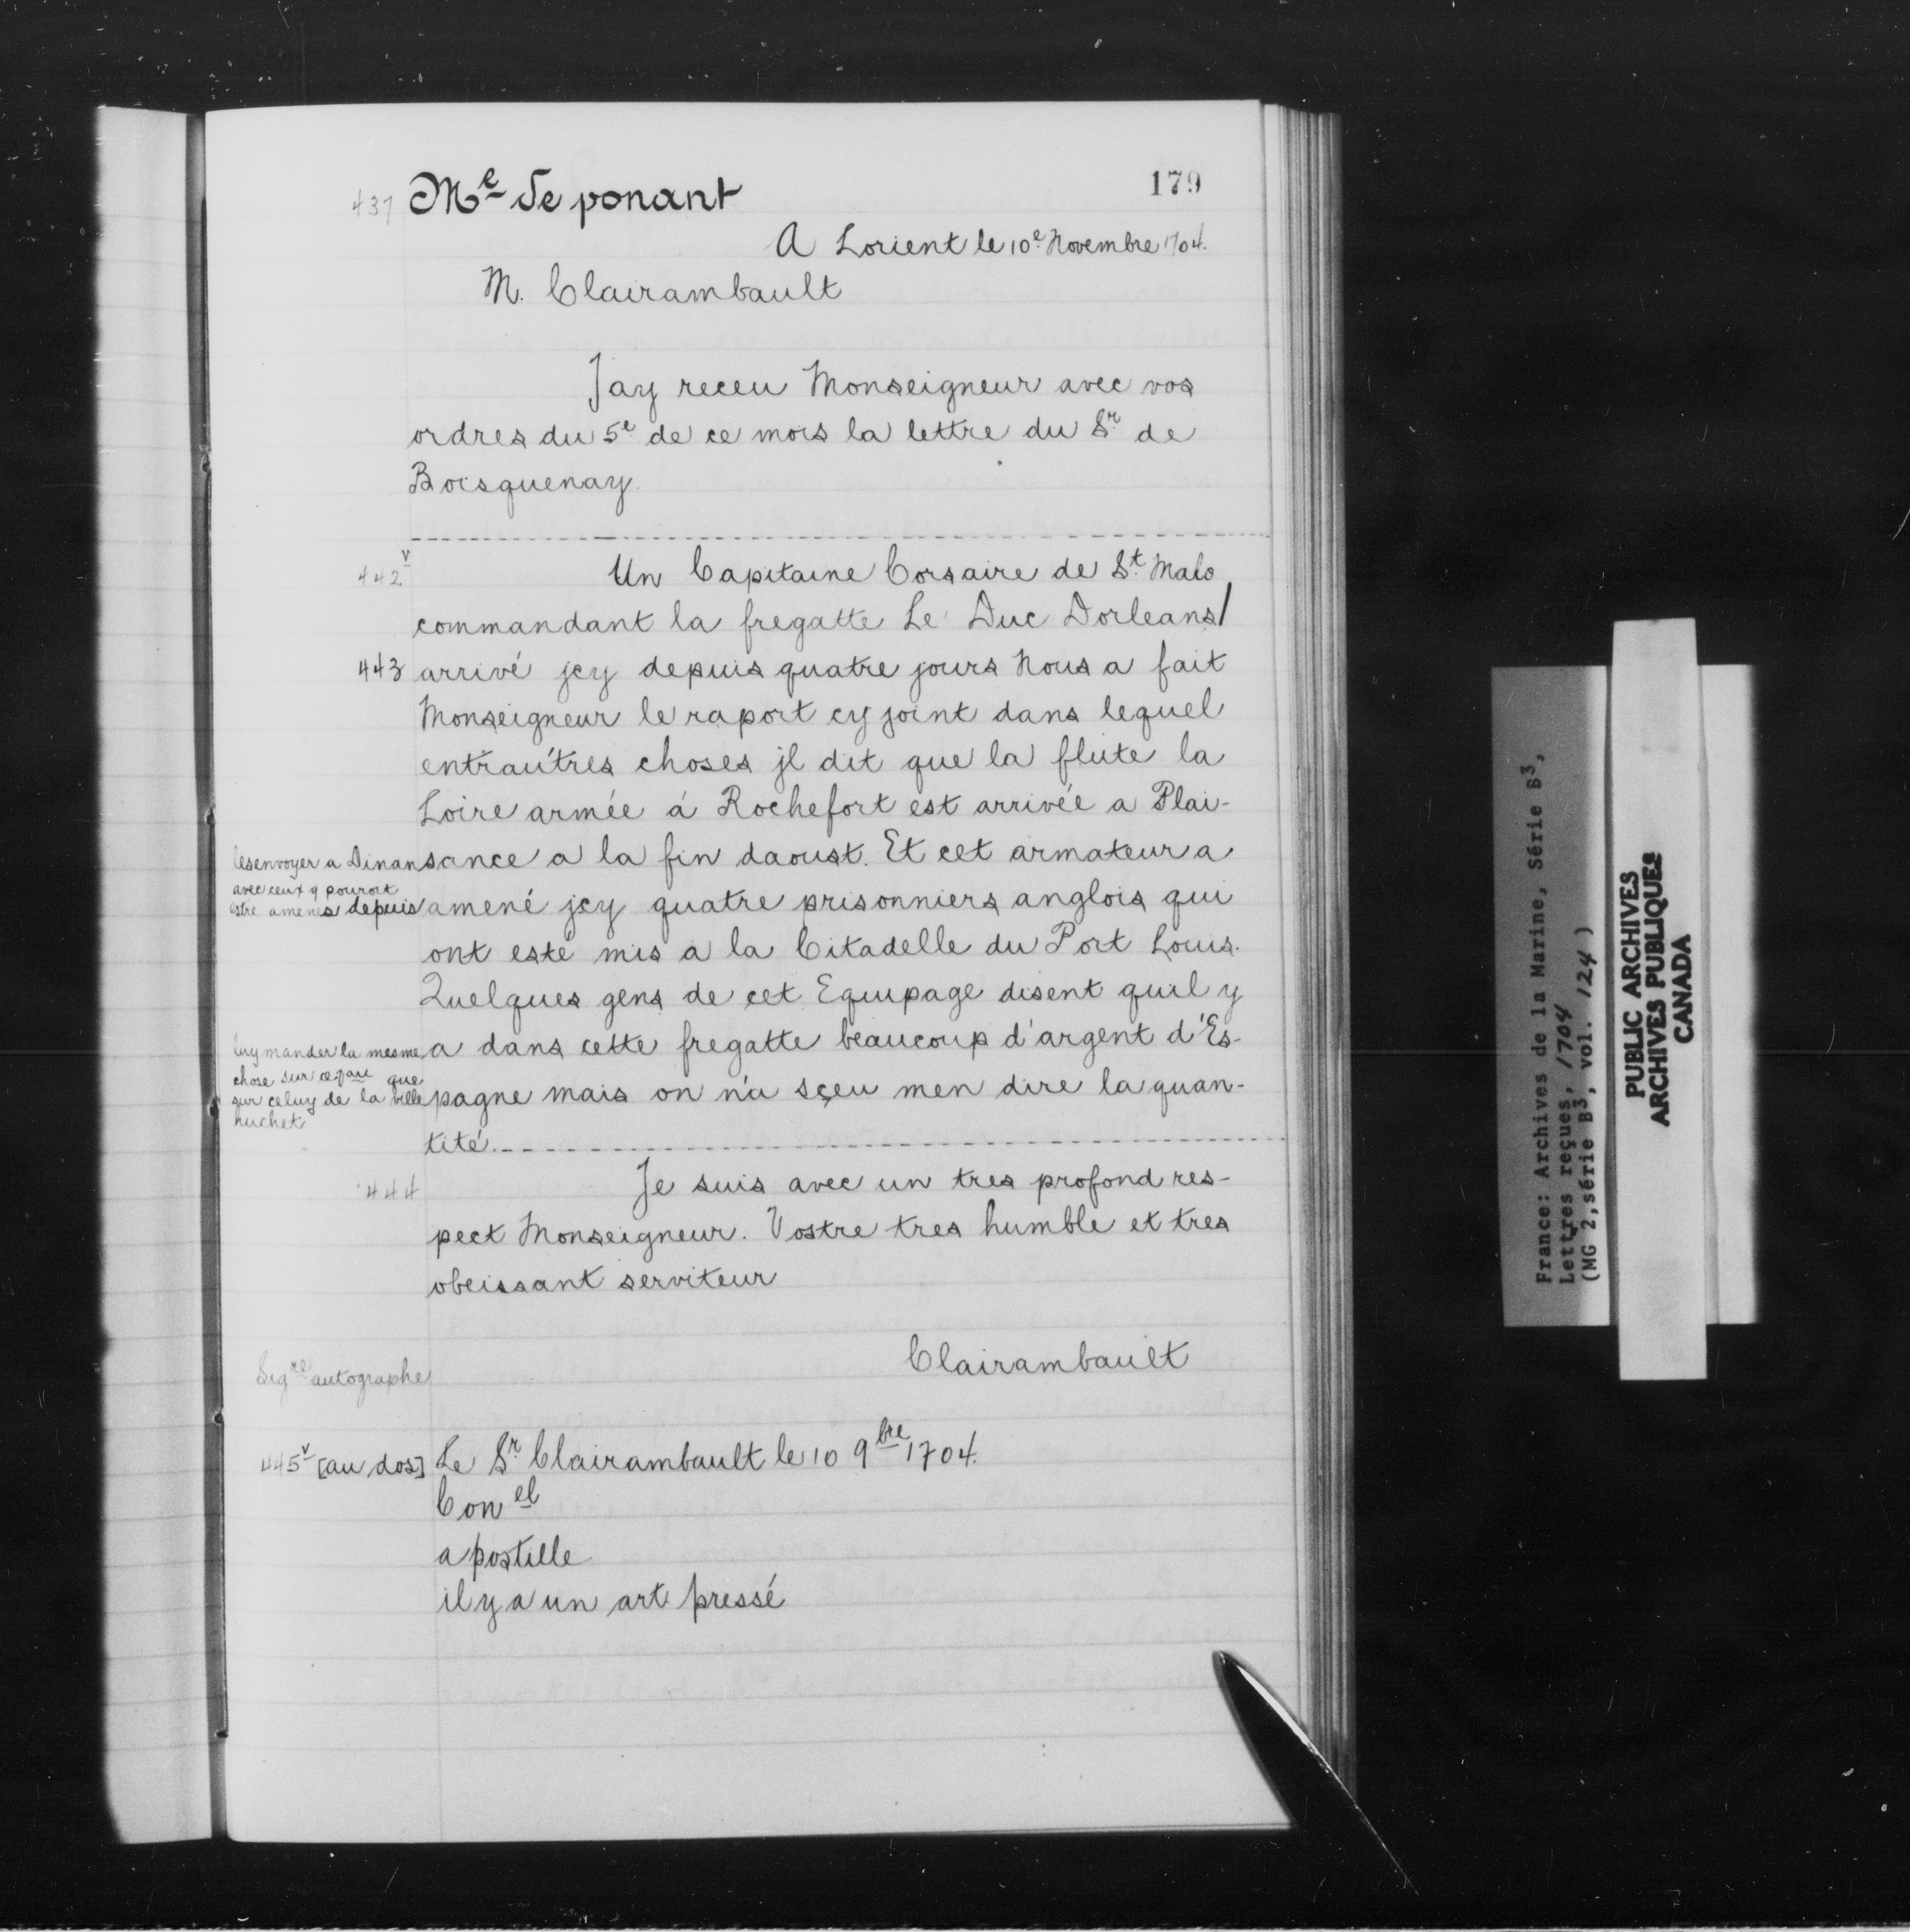 179
437 Me de ponant
A Lorient le 10e Novembre 1704.
M. Clairambault
Jay receu Monseigneur avec vos
ordres du 5e de ce mois la lettre du Sr de
Boisquenay.
442v Un Capitaine Corsaire de St. Malo
commandant la fregatte Le Duc Dorleans/
443 arrivé jcy depuis quatre jours Nous a fait
Monseigneur le raport cy joint dans lequel
entrau'tres choses jl dit que la flute la
Loire armée á Rochefort est arrivée a Plai-
sance a la fin daoust. Et cet armateur a
amené jcy quatre prisonniers anglois qui
ont esté mis a la Citadelle du Port Louis.
Quelques gens de cet Equipage disent quil y
a dans cette fregatte beaucoup d'argent d'Es-
pagne mais on n'a sçeu men dire la quan-
tité.
lesenvoyer a Dinan
avec ceux q pouroit
estre amenés depuis
luy mander la mesme
chose sur ce que
sur celuy de la ville
huchet
444 Je suis avec un tres profond res-
pect Monseigneur. Vostre tres humble et tres
obeissant serviteur
Clairambault
Sigre autographe
445v [au dos] Le Sr Clairambault le 10 9bre 1704.
Con el
apostille
il y a un art pressé
France: Archives de la Marine, Série B3,
Lettres reçues, 1704
(MG 2, série B3, vol. 124)
PUBLIC ARCHIVES
ARCHIVES PUBLIQUES
CANADA